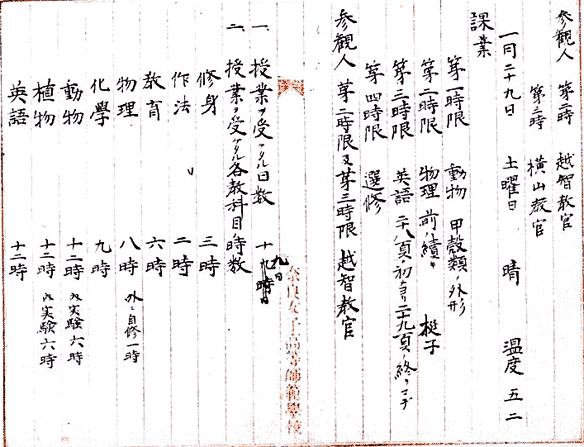 参観人 第二時 越智教官
第三時 横山教官
一同二十九日 土曜日 晴 温度 五二
課業
第一時限 動物 甲殻類ノ外形
第二時限 物理 前ノ続キ 梃子
第三時限 英語 二十八頁ノ初ヨリ二十九頁ノ終リマデ
第四時限 選修
参観人 第二時限及第三時限 越智教官
一、授業ヲ受ケタル日数 十九日
二、授業ヲ受ケタル各教科目ノ時数
修身 三時
作法 二時
教育 六時
物理 八時 外ニ自修一時
化学 九時
動物 十二時 内実験六時
植物 十二時 内実験六時
英語 十二時
奈良女子高等師範学校